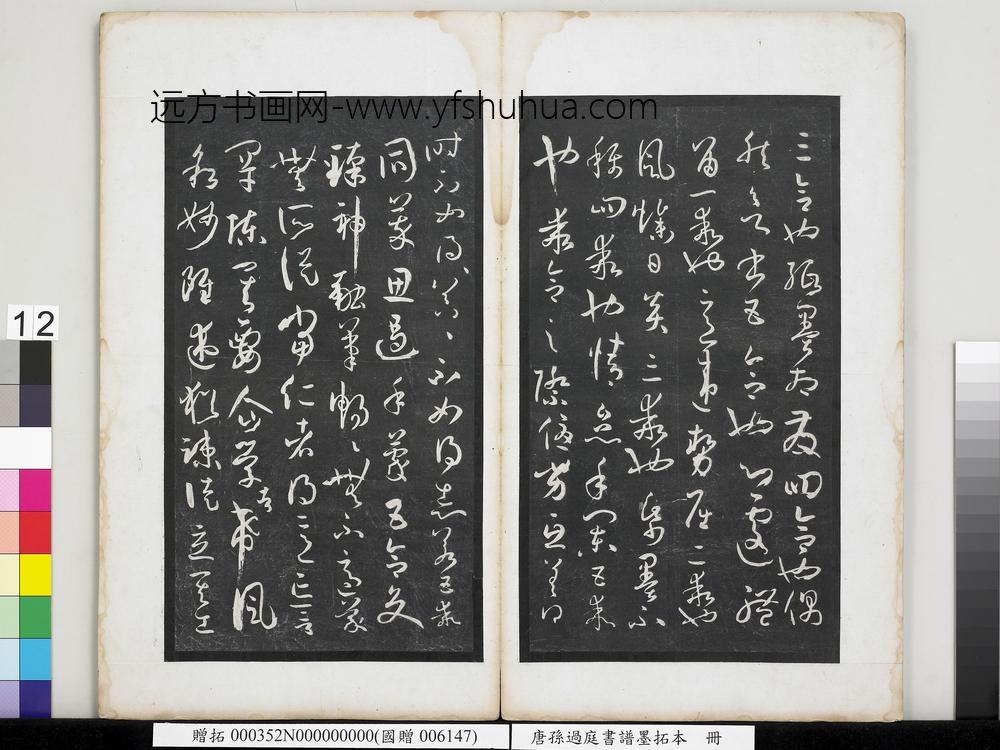 远方书画网-www.yfshuhua.com
三合也紙墨相發四合也偶
然欲書五合也心遽體
留一乖也意違勢屈二乖也
風燥日炎三乖也紙墨不
稱四乖也情怠手闌五乖
也乖合之際優劣互差得
時不如得器得器不如得志若五乖
同萃思遏手蒙五合交
臻神融筆暢暢無不適蒙
無所從當仁者得意忘言
罕陳其要企學者希風
敘妙雖述猶疎徒立其工
12
贈拓 000352N000000000(國贈 006147)
唐孫過庭書譜墨拓本 冊